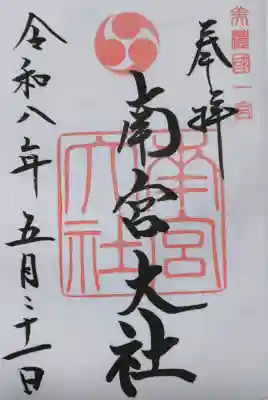 美濃國一宮
奉拝
南宮大社
南宮大社
令和八年五月二十一日